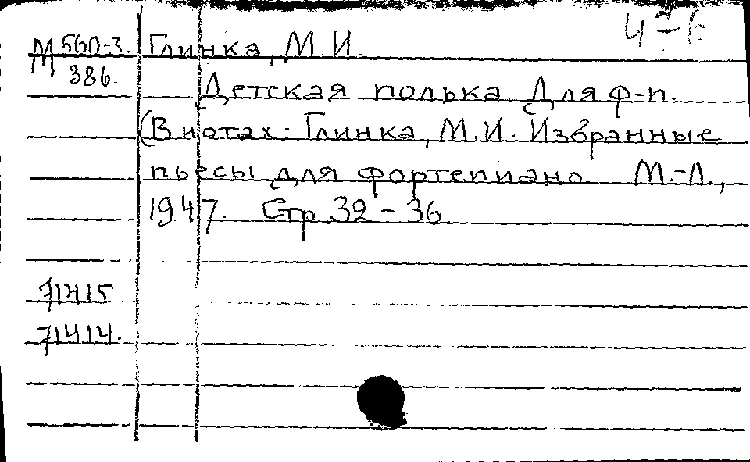 4-6
М 560-3. Глинка, М. И.
386.
Детская полька Для ф-п.
(В нотах: Глинка, М.И. Избранные
пьесы для фортепиано М.-Л.,
1947. Стр. 32-36.
71415
71414.